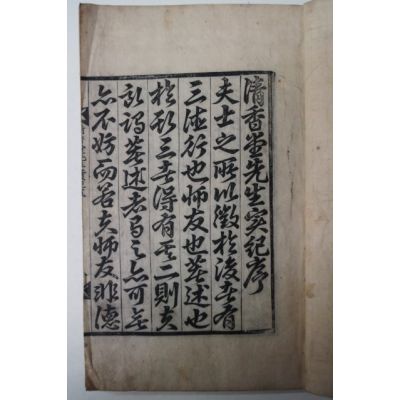 清香堂先生實紀序
夫士之所以徵於後者有
三德行也師友也著述也
於斯三者得有其二則其
所謂著述者有之亦可無
亦不妨而若其師友非德